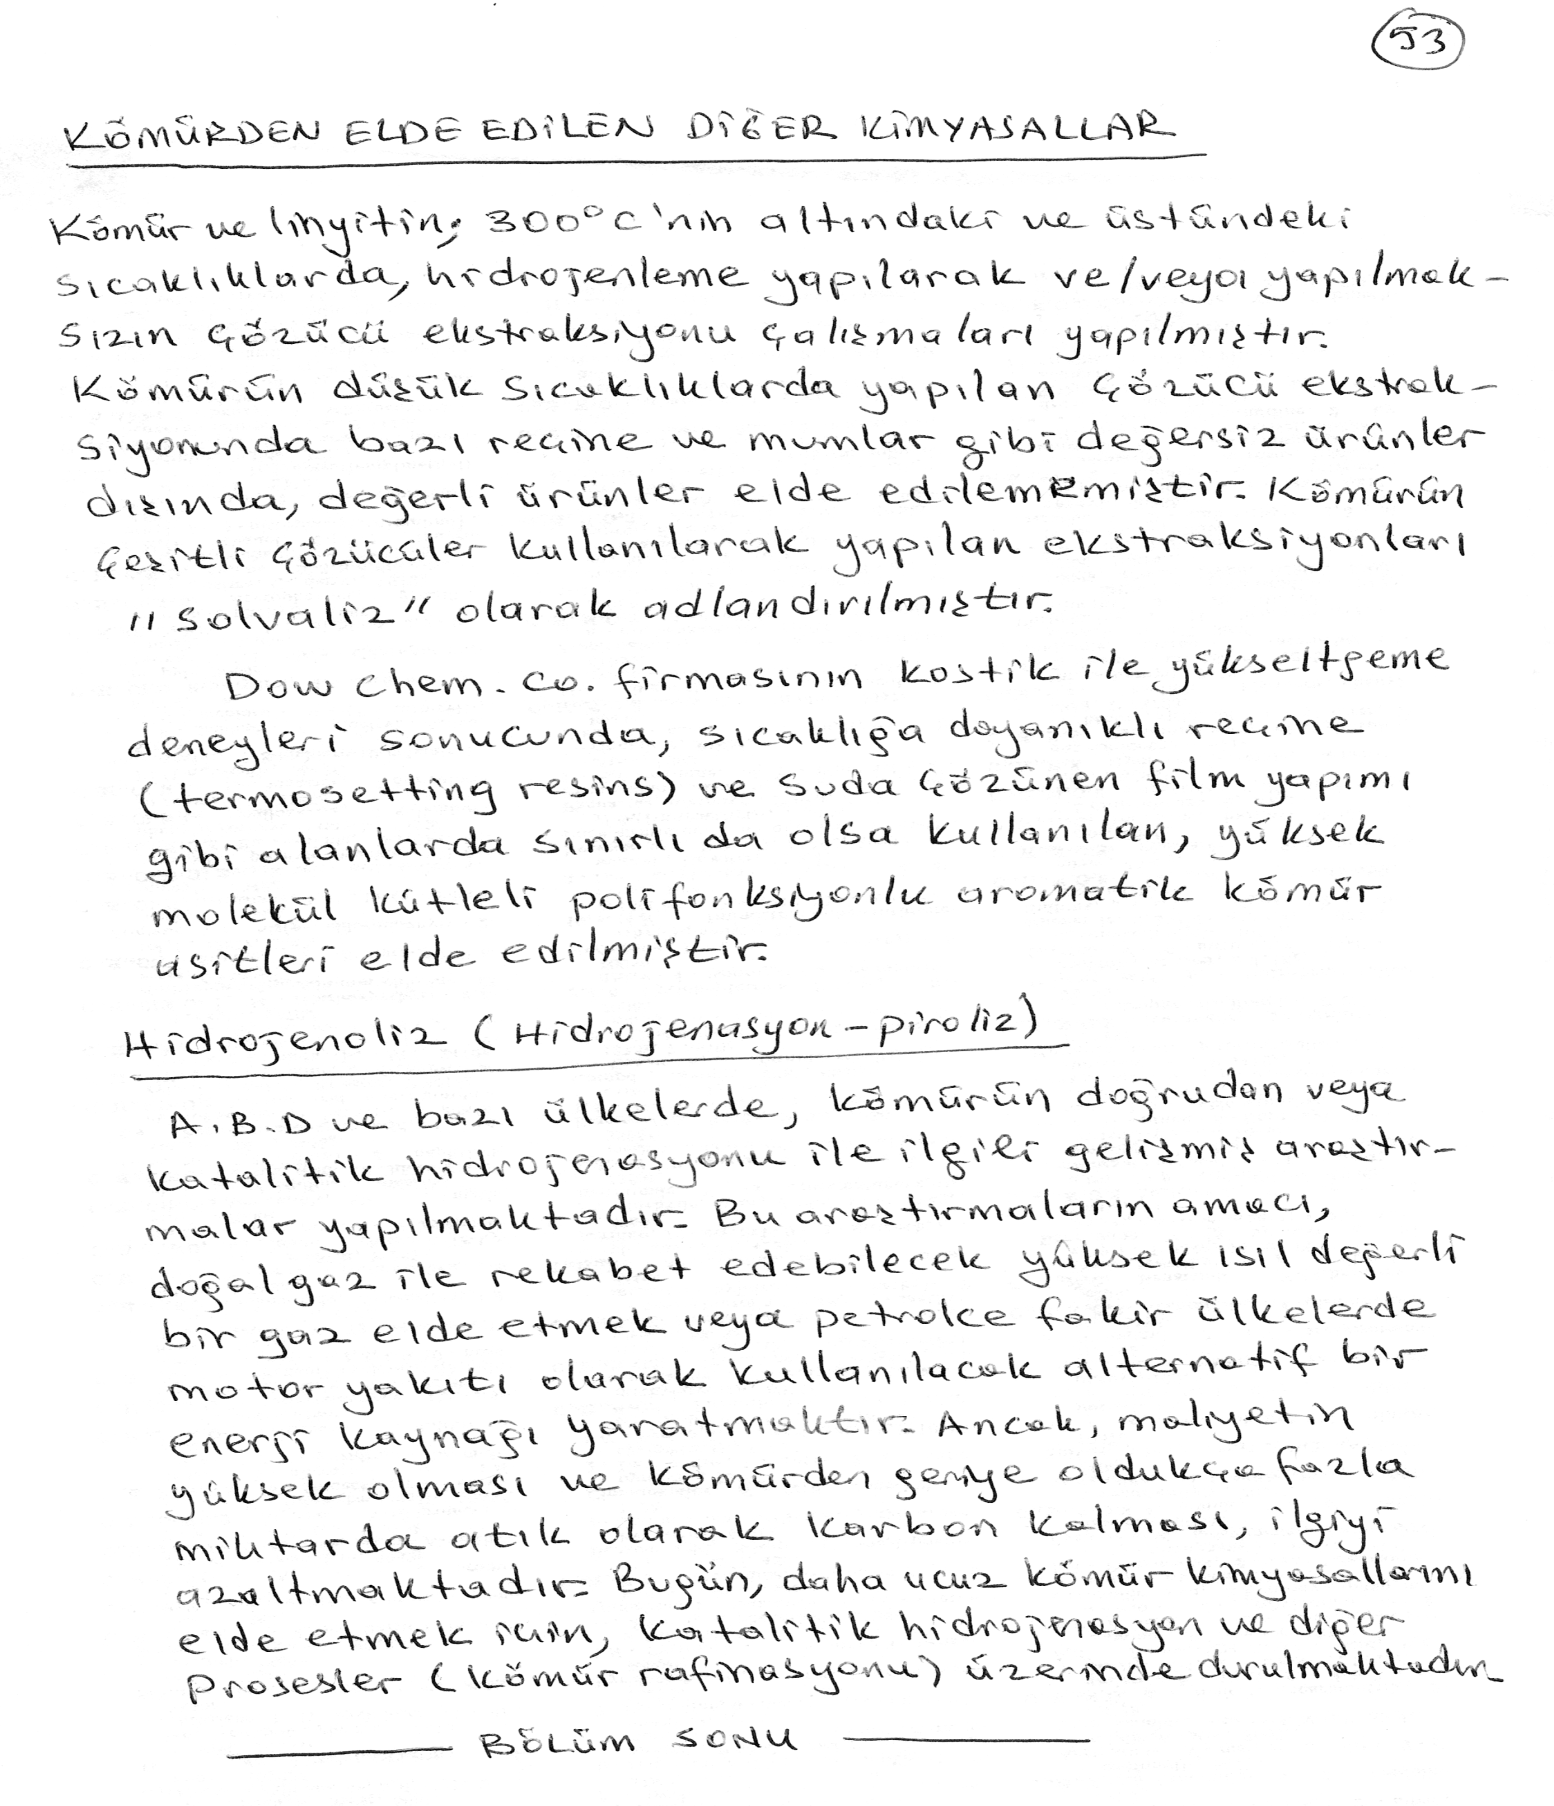 53
KÖMÜRDEN ELDE EDİLEN DİĞER KİMYASALLAR
Kömür ve linyitin; 300°C'nin altındaki ve üstündeki
sıcaklıklarda, hidrojenleme yapılarak ve/veya yapılmak-
sızın çözücü ekstraksiyonu çalışmaları yapılmıştır.
Kömürün düşük sıcaklıklarda yapılan çözücü ekstrak-
siyonunda bazı reçine ve mumlar gibi değersiz ürünler
dışında, değerli ürünler elde edilememiştir. Kömürün
çeşitli çözücüler kullanılarak yapılan ekstraksiyonları
"solvaliz" olarak adlandırılmıştır.
Dow Chem. Co. firmasının kostik ile yükseltgeme
deneyleri sonucunda, sıcaklığa dayanıklı reçine
(termosetting resins) ve suda çözünen film yapımı
gibi alanlarda sınırlı da olsa kullanılan, yüksek
molekül kütleli polifonksiyonlu aromatik kömür
asitleri elde edilmiştir.
Hidrojenoliz (Hidrojenasyon-piroliz)
A.B.D ve bazı ülkelerde, kömürün doğrudan veya
katalitik hidrojenasyonu ile ilgili gelişmiş araştır-
malar yapılmaktadır. Bu araştırmaların amacı,
doğal gaz ile rekabet edebilecek yüksek ısıl değerli
bir gaz elde etmek veya petrolce fakir ülkelerde
motor yakıtı olarak kullanılacak alternatif bir
enerji kaynağı yaratmaktır. Ancak, maliyetin
yüksek olması ve kömürden geriye oldukça fazla
miktarda atık olarak karbon kalması, ilgiyi
azaltmaktadır. Bugün, daha ucuz kömür kimyasallarını
elde etmek için, katalitik hidrojenasyon ve diğer
prosesler (kömür rafinasyonu) üzerinde durulmaktadır.
BÖLÜM SONU